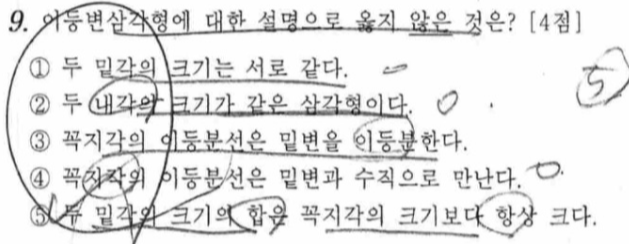 9. 이등변삼각형에 대한 설명으로 옳지 않은 것은? [4점]
① 두 밑각의 크기는 서로 같다.
② 두 내각의 크기가 같은 삼각형이다.
③ 꼭지각의 이등분선은 밑변을 이등분한다.
④ 꼭지각의 이등분선은 밑변과 수직으로 만난다.
⑤ 두 밑각의 크기의 합은 꼭지각의 크기보다 항상 크다.
5